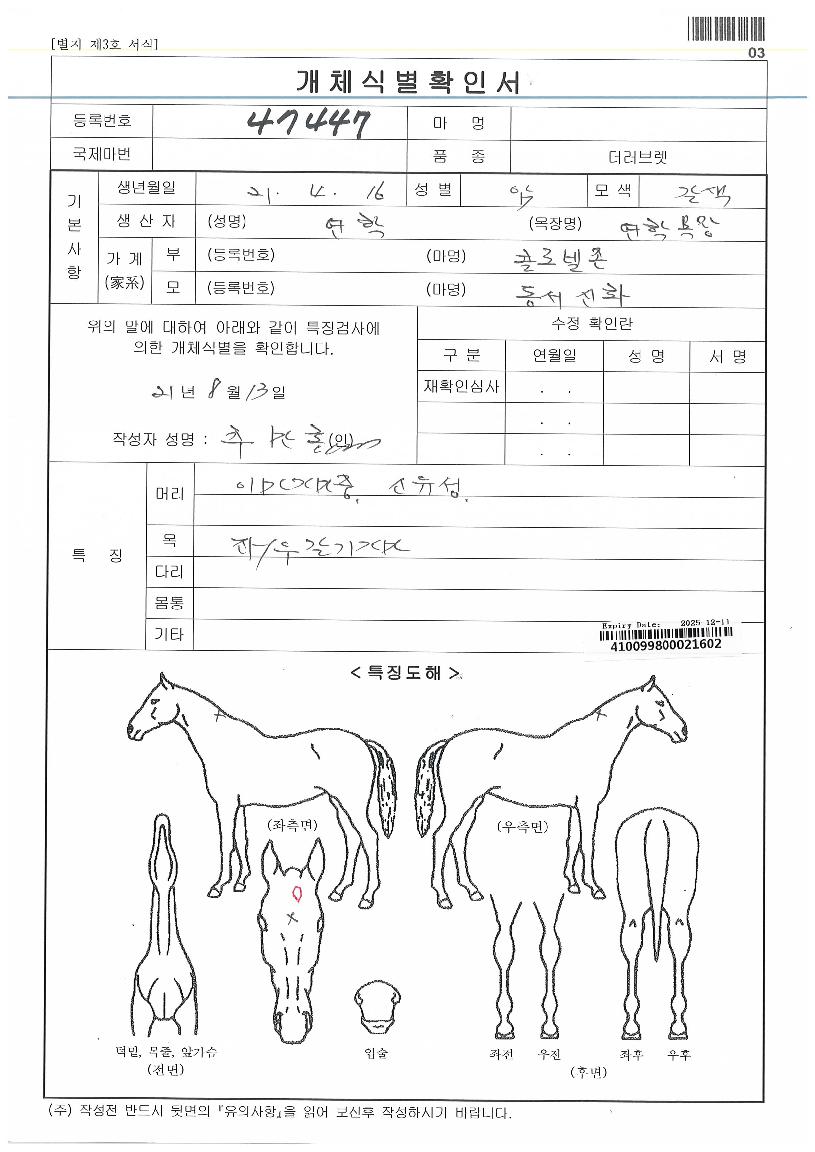 [별지 제3호 서식]
03
개체식별확인서
등록번호 47447 마 명
국제마번 품 종 더러브렛
기본사항
생년월일 21. 4. 16 성 별 암 모 색 갈색
생 산 자 (성명) 연학 (목장명) 연학목장
가 계 (家系) 부 (등록번호) (마명) 콜로넬존
모 (등록번호) (마명) 동서진화
위의 말에 대하여 아래와 같이 특징검사에
의한 개체식별을 확인합니다.
21년 8월 13일
작성자 성명 : (인)
수정 확인란
구 분 연월일 성 명 서 명
재확인심사 . .
. .
. .
특 징
머리
목
다리
몸통
기타
Expiry Date: 2025-12-11
410099800021602
< 특징도해 >
(좌측면) (우측면)
턱밑, 목줄, 앞가슴 입술 좌전 우전 좌후 우후
(전면) (후면)
(주) 작성전 반드시 뒷면의 『유의사항』을 읽어 보신후 작성하시기 바랍니다.